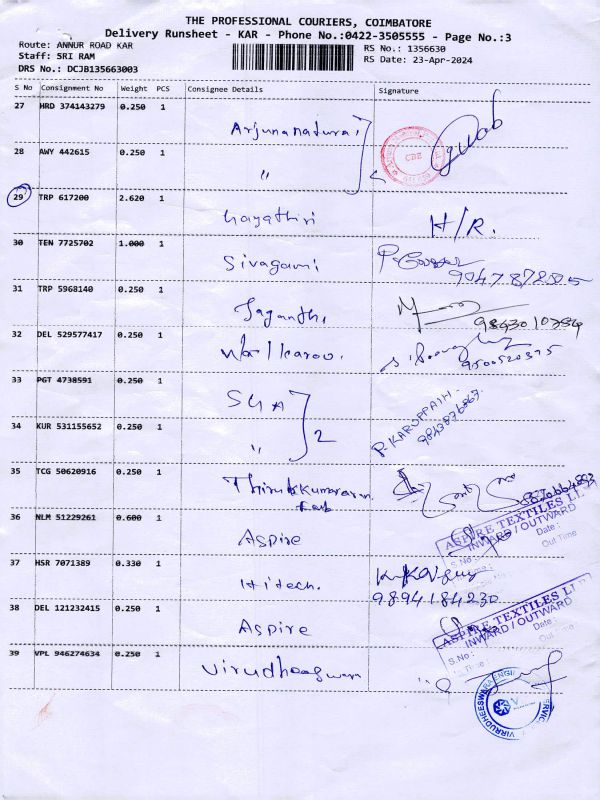 THE PROFESSIONAL COURIERS, COIMBATORE
Delivery Runsheet - KAR - Phone No.:0422-3505555 - Page No.:3
Route: ANNUR ROAD KAR
RS No.: 1356630
Staff: SRI RAM
RS Date: 23-Apr-2024
DRS No.: DCJB135663003
S No Consignment No Weight PCS Consignee Details Signature
27 HRD 374143279 0.250 1
Arjuna natural
CBE
28 AWY 442615 0.250 1
"
29 TRP 617200 2.620 1
Gayathiri H/R.
30 TEN 7725702 1.000 1
Sivagami
31 TRP 5968140 0.250 1
Jaganthi
9843010384
32 DEL 529577417 0.250 1
9500520375
33 PGT 4738591 0.250 1
P. KARUPPAIH.
34 KUR 531155652 0.250 1
" 2
35 TCG 50620916 0.250 1
36 NLM 51229261 0.600 1
Aspire
ASPIRE TEXTILES LLP
INWARD / OUTWARD
S.No: Date:
Out Time
37 HSR 7071389 0.330 1
Hitech.
9894184230
38 DEL 121232415 0.250 1
Aspire
ASPIRE TEXTILES LLP
INWARD / OUTWARD
S.No: Date:
In Time Out Time
39 VPL 946274634 0.250 1